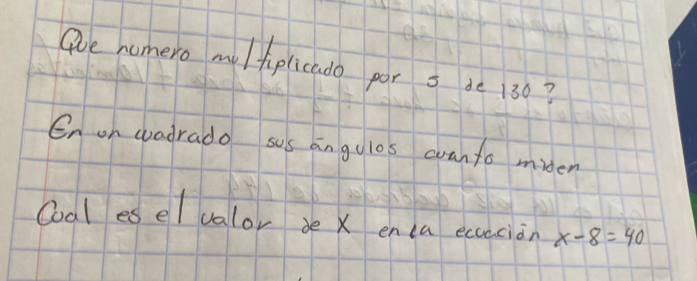 Que numero multiplicado por 5 de 130?
En un cuadrado sus ángulos cuanto miden
Cual es el valor de x en la ecuación x-8=40